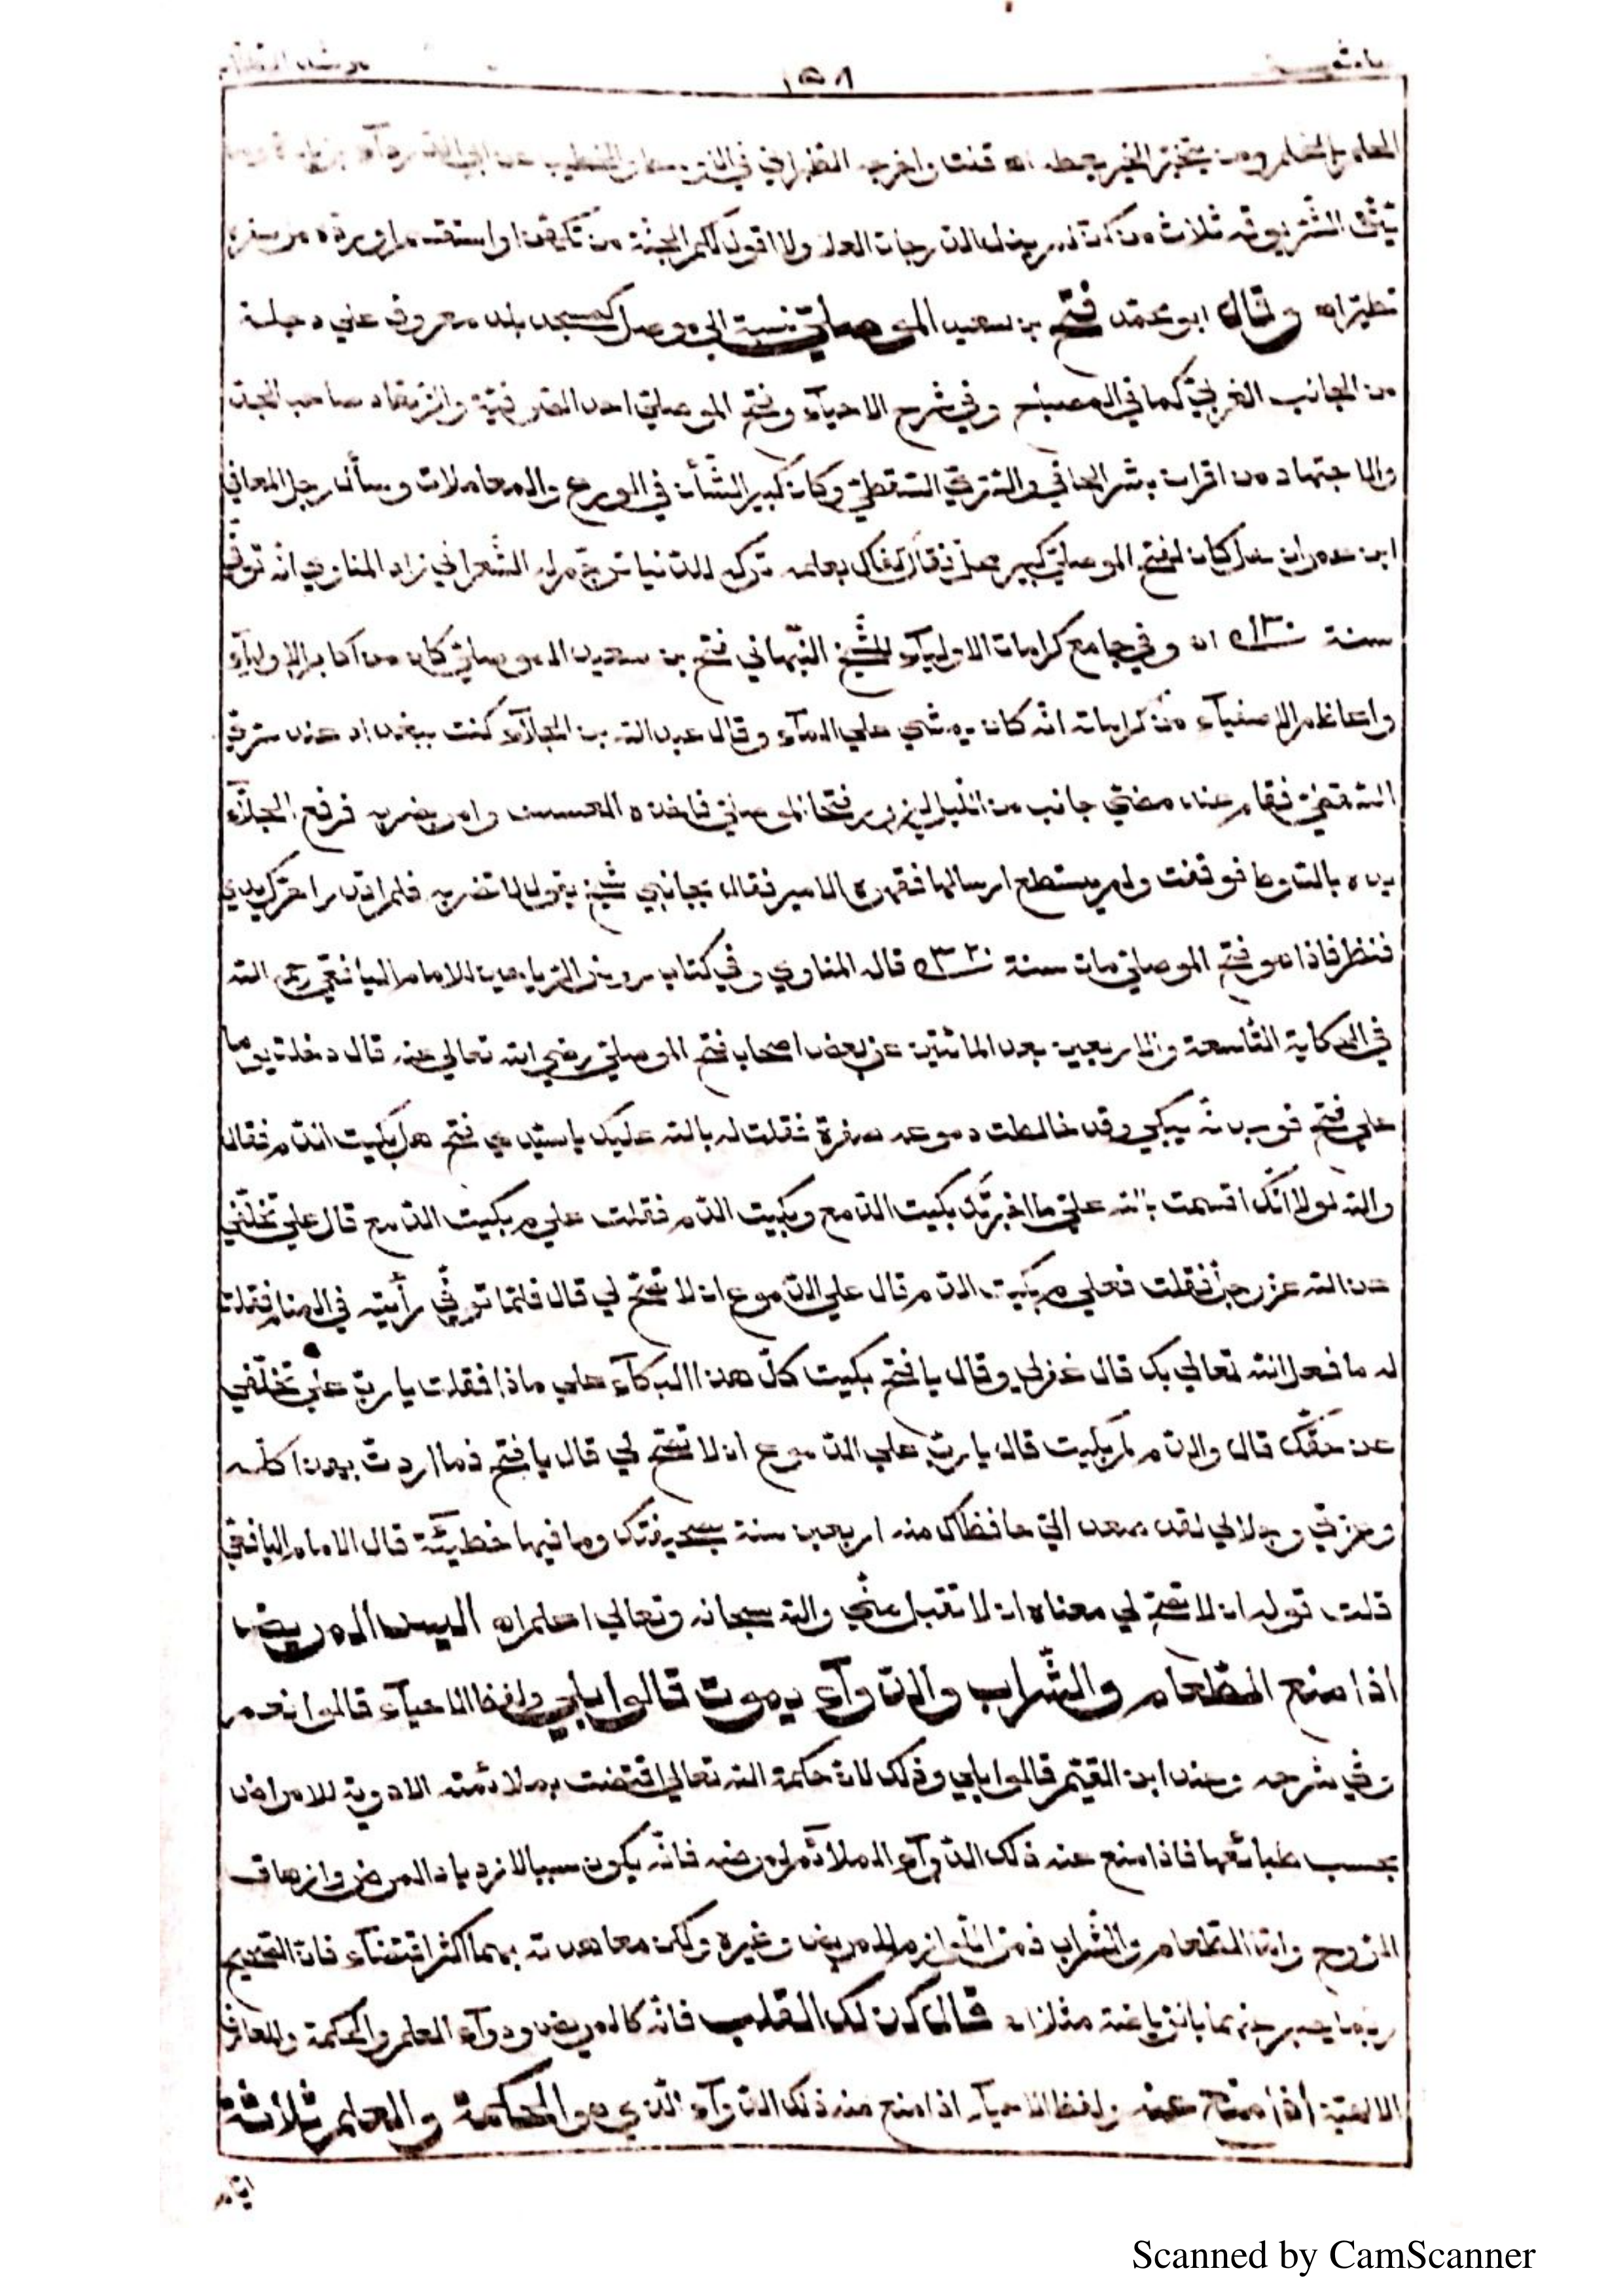 ١٥٨
العلم بالتعلم ومن يتحر الخير يعطه اه قلت واخرجه الطبراني في والخطيب عن ابي الدرداء
يتق الشر يوقه ثلاث من كن فيه لم ينل الدرجات العلا ولا اقول لكم الجنة من تكهن او استقسم او رده من سفره
تطير اه وقال ابو محمد فتح بن سعيد الموصلي نسبة الى موصل كمسجد بلد معروف على دجلة
من الجانب الغربي كما في المصباح وفي شرح الاحياء وفتح الموصلي احد الصوفية والزهاد صاحب الجد
والاجتهاد من اقران بشر الحافي والسري السقطي وكان كبير الشأن في الورع والمعاملات وسأل رجل المعافى
ابن عمران هل كان لفتح الموصلي كبير عمل فقال كفاك بعلمه تركه للدنيا ترجم له الشعراني زاد المناوي انه توفي
سنة اه وفي جامع كرامات الاولياء للشيخ النبهاني فتح بن سعيد الموصلي كان من اكابر الاولياء
واعاظم الاصفياء من كراماته انه كان يمشي على الماء وقال عبد الله بن الجلاء كنت ببغداد عند سري
السقطي فقام عند مضي جانب من الليل ليزور فتحا الموصلي فاخذه العسس وامر بضربه فرفع الجلاد
يده بالسوط فوقفت ولم يستطع ارسالها فقهره الامير فقال بجانبي شيخ يقول لا تضربه فلم اقدر احرك يدي
فنظر فاذا هو فتح الموصلي مات سنة قال المناوي وفي كتاب روض الرياحين للامام اليافعي رحمه الله
في الحكاية التاسعة والاربعين بعد المائتين عن بعض اصحاب فتح الموصلي رضي الله تعالى عنه قال دخلت يوما
على فتح فوجدته يبكي وقد خالطت دموعه صفرة فقلت له بالله عليك يا سيدي فتح هل بكيت الدم فقال
والله لولا انك اقسمت بالله علي ما اخبرتك بكيت الدمع وبكيت الدم فقلت على م بكيت الدمع قال على تخلفي
عن الله عز وجل فقلت فعلى م بكيت الدم قال على الدموع ان لا تصح لي قال فلما توفي رأيته في المنام فقلت
له ما فعل الله تعالى بك قال غفر لي وقال يا فتح بكيت كل هذا البكاء على ماذا فقلت يا رب على تخلفي
عن حقك قال والدم لم بكيت قال يا رب على الدموع ان لا تصح لي قال يا فتح فما اردت بهذا كله
وعزتي وجلالي لقد صعد الي حافظاك منذ اربعين سنة بصحيفتك وما فيها خطيئة قال الامام اليافعي
قلت قوله ان لا تصح لي معناه ان لا تقبل مني والله سبحانه وتعالى اعلم اه اليس المريض
اذا منع الطعام والشراب والدوآء يموت قالوا بلى ولفظ الاحياء قالوا نعم
وفي شرحه وعند ابن القيم قالوا بلى وذلك لان حكمة الله تعالى اقتضت بملائمة الادوية للامراض
بحسب طبائعها فاذا منع عنه ذلك الدوآء الملائم لمرضه فانه يكون سببا لازدياد المرض وازهاق
الروح واما الطعام والشراب فمن اللوازم للمريض وغيره ولكن معاهدته بهما اكثر اقتضاء فان الصحيح
ربما يصبر عنهما بانواع مثلا اه قال كذلك القلب فانه كالمريض ودوآء العلم والحكمة والمعارف
الالهية اذا منع عنه ولفظ الاحياء اذا منع منه ذلك الدوآء الذي هو الحكمة والعلم ثلاثة
ايام
Scanned by CamScanner